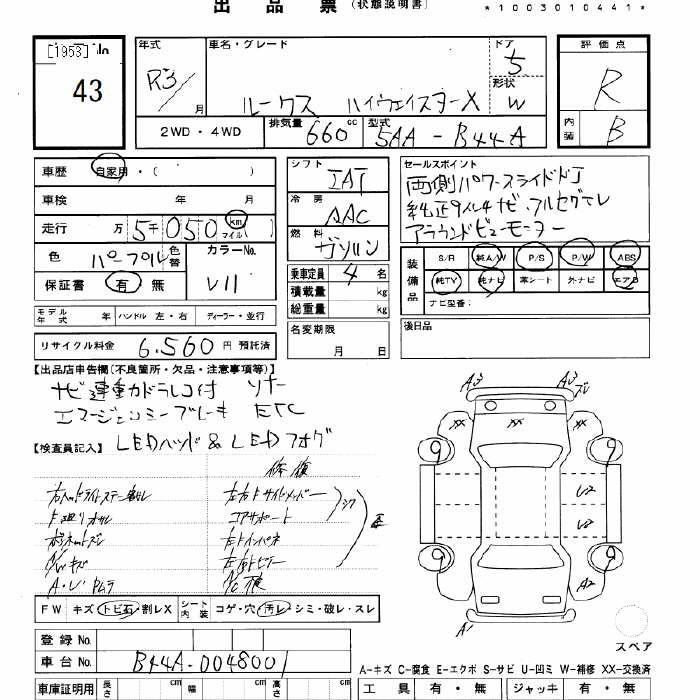 出品票 (状態説明書)
*1003010441*
[1953] in
43
年式 R3/ 月
車名・グレード ルークス ハイウェイスターX
ドア 5
形状 W
評価点 R
内装 B
2WD・4WD 排気量 660 cc 型式 5AA-B44A
車歴 自家用・( )
車検 年 月
走行 万 5千 050 km マイル
色 パープル 色替 カラーNo. V11
保証書 有 無
シフト IAT
冷房 AAC
燃料 ガソリン
乗車定員 4 名
積載量 kg
総重量 kg
セールスポイント
両側パワースライドドア
純正9インチナビ フルセグTV
アラウンドビューモニター
装備品 S/R 純A/W P/S P/W ABS
純TV 純ナビ 革シート 外ナビ エアB
ナビ型番:
モデル年式 年 ハンドル 左・右 ディーラー・並行
名変期限 月 日
後日品
リサイクル料金 6,560 円 預託済
【出品店申告欄(不良箇所・欠品・注意事項等)】
ナビ連動カドラレコ付 ソナー
エマージェンシーブレーキ ETC
LEDヘッド&LEDフォグ
【検査員記入】
修復
コアサポート
左右トサイドメンバー
A/Wキズ
FW キズ トビ石・割レX シート内装 コゲ・穴・汚レ・シミ・破レ・スレ
登録No.
車台No. B44A-0048001
車庫証明用 長さ cm 幅 cm 高さ cm
A3 A3
XX XX XX
9 9
U2
U2
9 9
A2
A1
スペア
A-キズ C-腐食 E-エクボ S-サビ U-凹ミ W-補修 XX-交換済
工具 有・無 ジャッキ 有・無